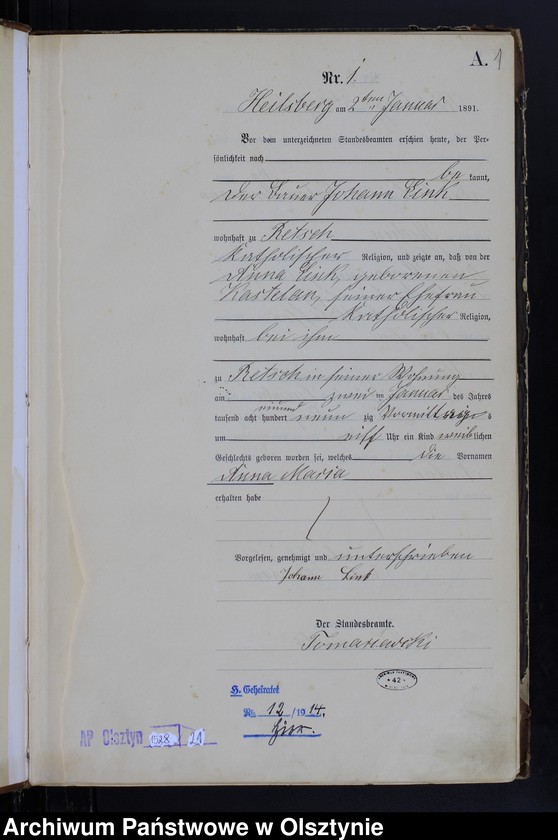 A. 1
Nr. 1
Heilsberg am 2ten Januar 1891.
Vor dem unterzeichneten Standesbeamten erschien heute, der Per-
sönlichkeit nach
be kannt,
der Bauer Johann Link
wohnhaft zu Retsch
katholischer Religion, und zeigte an, daß von der
Anna Link, geborenen
Kastelan, seiner Ehefrau
katholischer Religion,
wohnhaft bei ihm
zu Retsch in seiner Wohnung
am zwei ten Januar des Jahres
tausend acht hundert einund neun zig Vormittags
um Uhr ein Kind weiblichen
Geschlechts geboren worden sei, welches die Vornamen
Anna Maria
erhalten habe
Vorgelesen, genehmigt und unterschrieben
Johann Link
Der Standesbeamte.
Tomaszewski
42
H. Geheiratet
Nr. 12/1914.
AP Olsztyn 1528 21
Archiwum Państwowe w Olsztynie